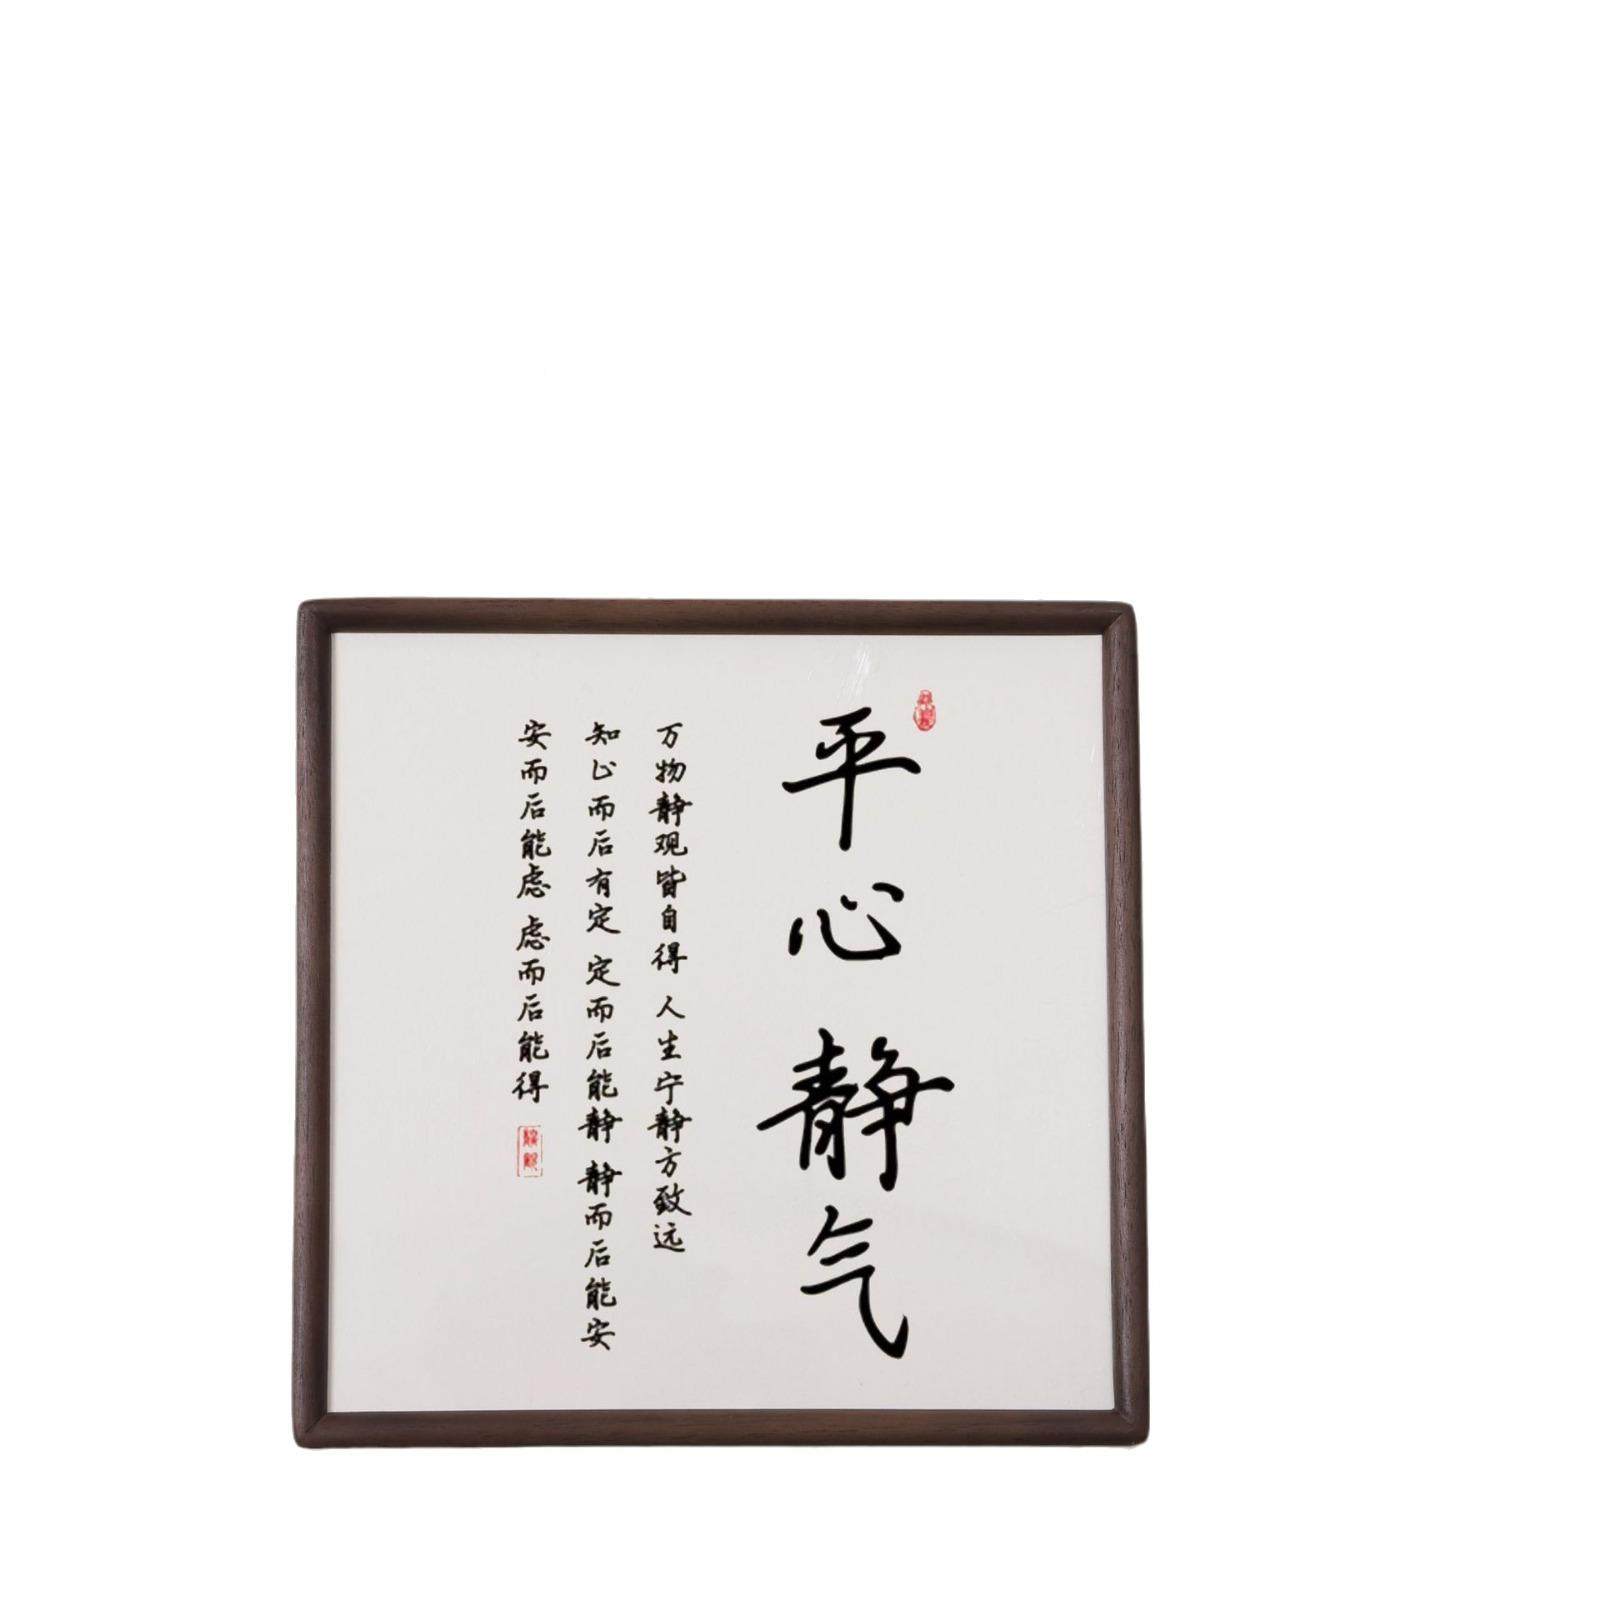 平心静气
万物静观皆自得 人生宁静方致远
知止而后有定 定而后能静 静而后能安
安而后能虑 虑而后能得